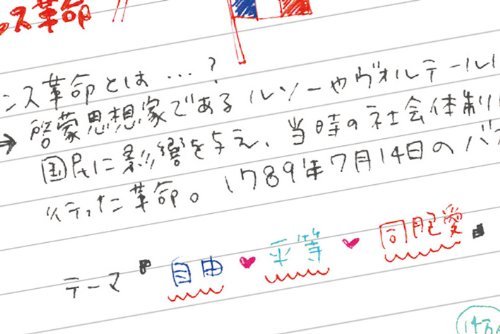 ンス革命
ンス革命とは…?
→ 啓蒙思想家であるルソーやヴォルテール
国民に影響を与え、当時の社会体制
行った革命。1789年7月14日のバ
テーマ 自由♥平等♥同胞愛